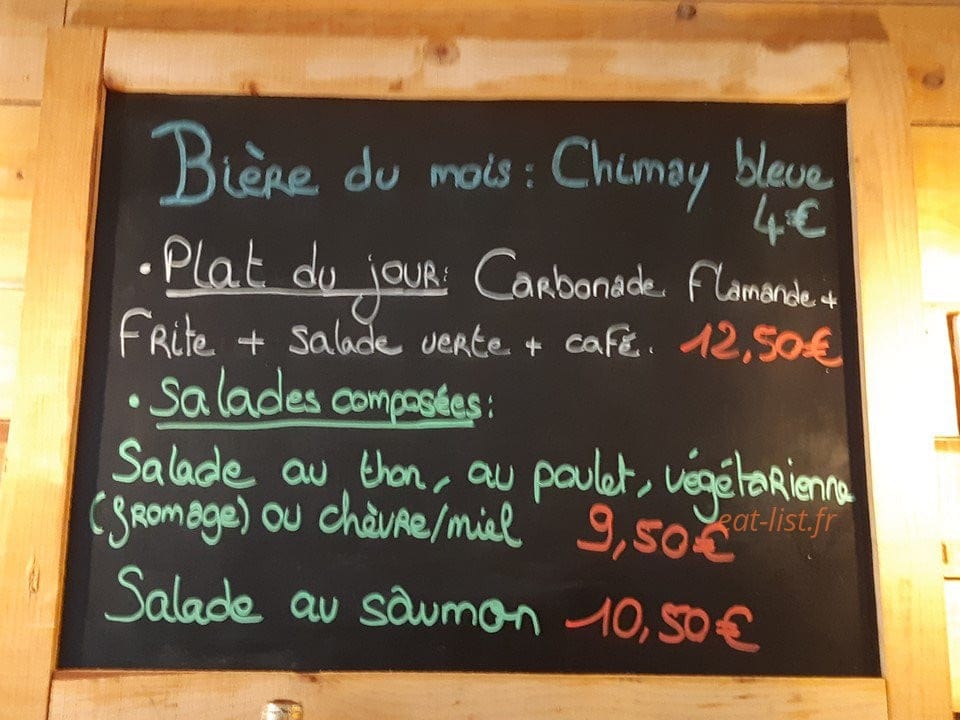 Bière du mois : Chimay bleue
4€
• Plat du jour : Carbonade Flamande +
Frite + salade verte + café. 12,50€
• Salades composées :
Salade au thon, au poulet, végétarienne
(fromage) ou chèvre/miel 9,50€
eat-list.fr
Salade au saumon 10,50€